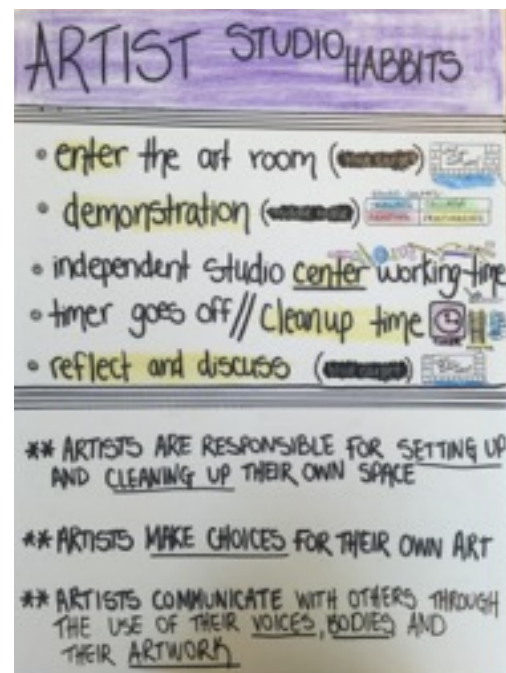 ARTIST STUDIO HABBITS
• enter the art room ( )
• demonstration ( )
• independent studio center working time
• timer goes off// Cleanup time
• reflect and discuss ( )
** ARTISTS ARE RESPONSIBLE FOR SETTING UP
AND CLEANING UP THEIR OWN SPACE
** ARTISTS MAKE CHOICES FOR THEIR OWN ART
** ARTISTS COMMUNICATE WITH OTHERS THROUGH
THE USE OF THEIR VOICES, BODIES AND
THEIR ARTWORK